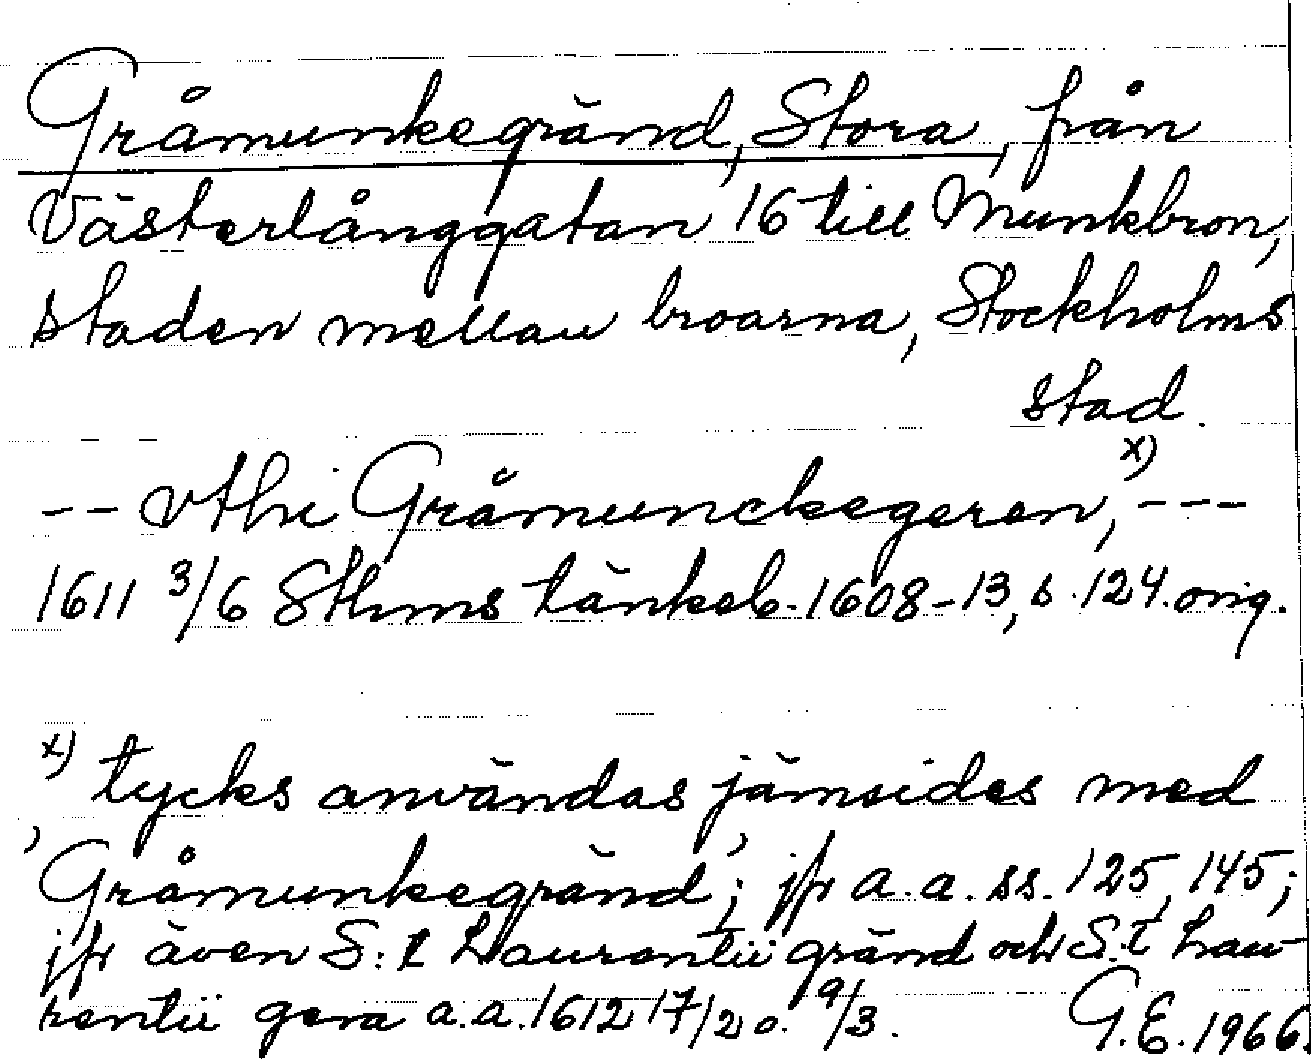 Gråmunkegränd, Stora, från
Västerlånggatan 16 till Munkbron,
staden mellan broarna, Stockholms
stad.
-- vthi Gråmunckegeren, x) ---
1611 3/6 Sthms tänkeb. 1608-13, s. 124. orig.
x) tycks användas jämsides med
'Gråmunkegränd'; jfr a.a. ss. 125, 145;
jfr även S:t Laurentii gränd och S:t Lau-
rentii gera a.a. 1612 17/2 o. 9/3. G.E. 1966.